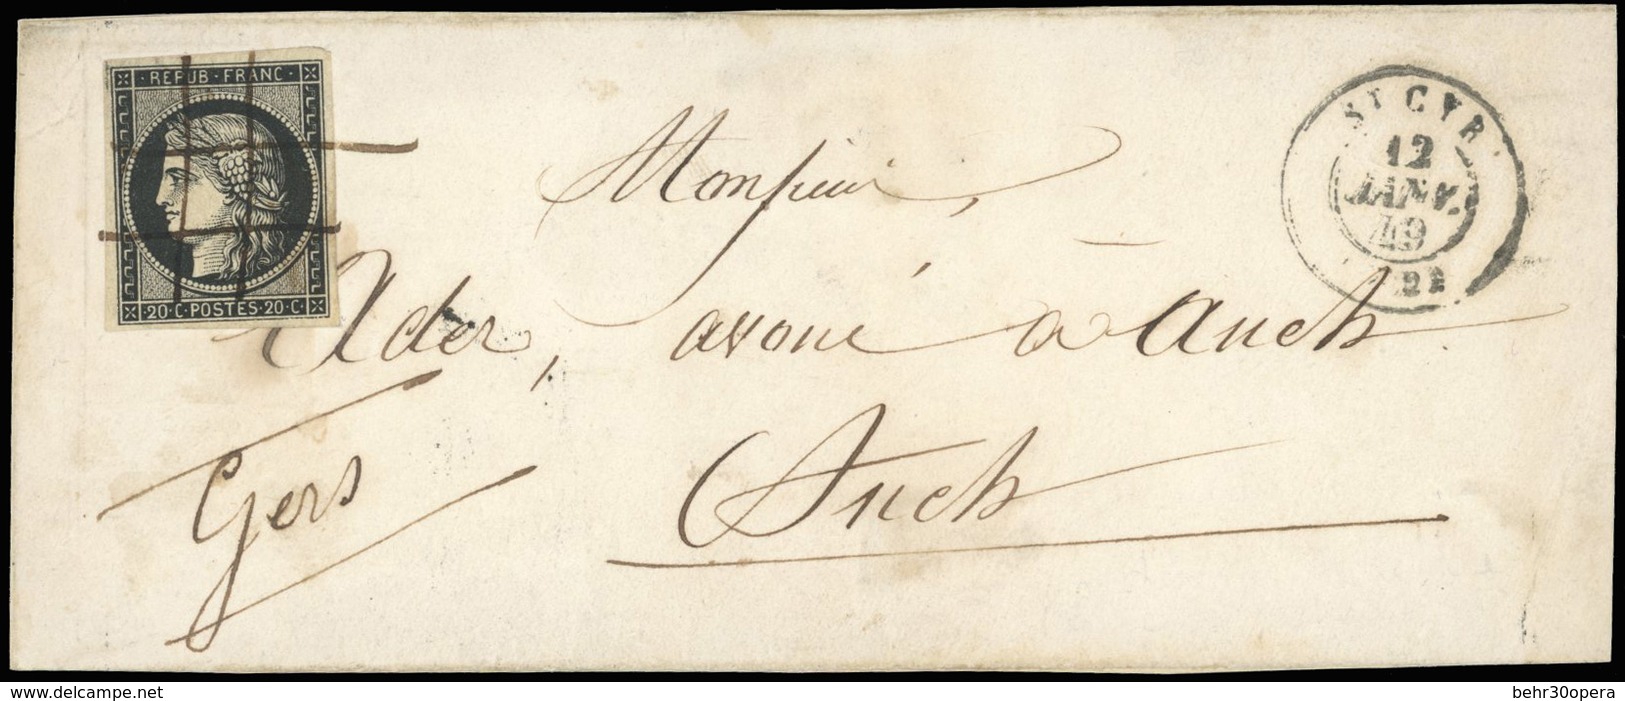 REPUB·FRANC·
20·C·POSTES·20·C·
ST CYR
12
JANV.
49
Monsieur,
Ader, avoué à Auch
Gers
Auch
www.delcampe.net
behr30opera